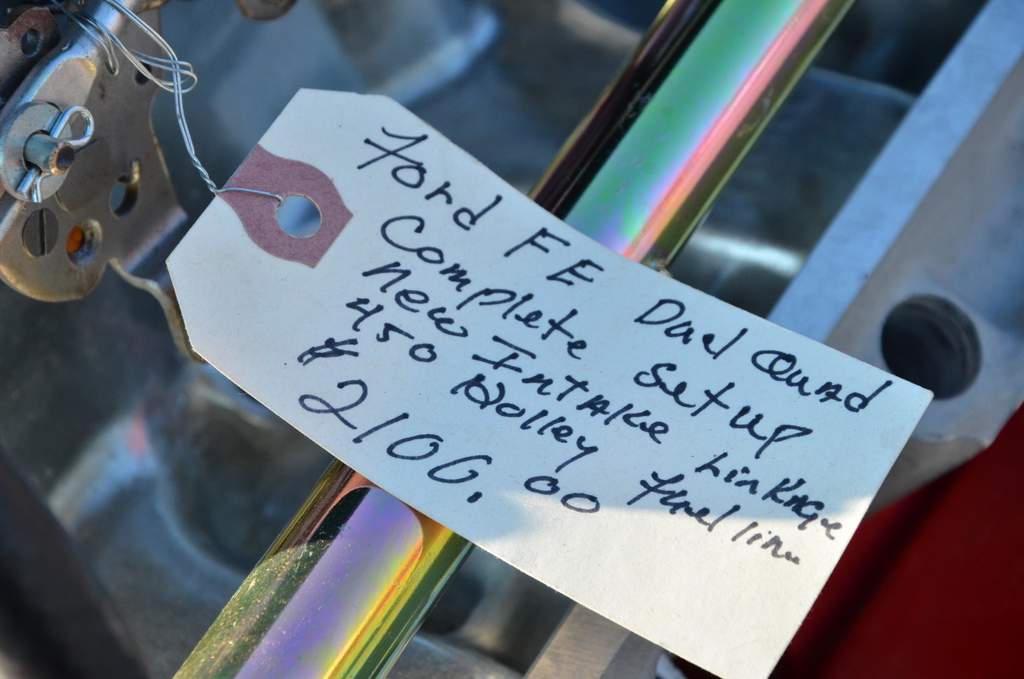 Ford FE Dual Quad
Complete Setup
New Intake Linkage
450 Holley fuel line
$2100.00